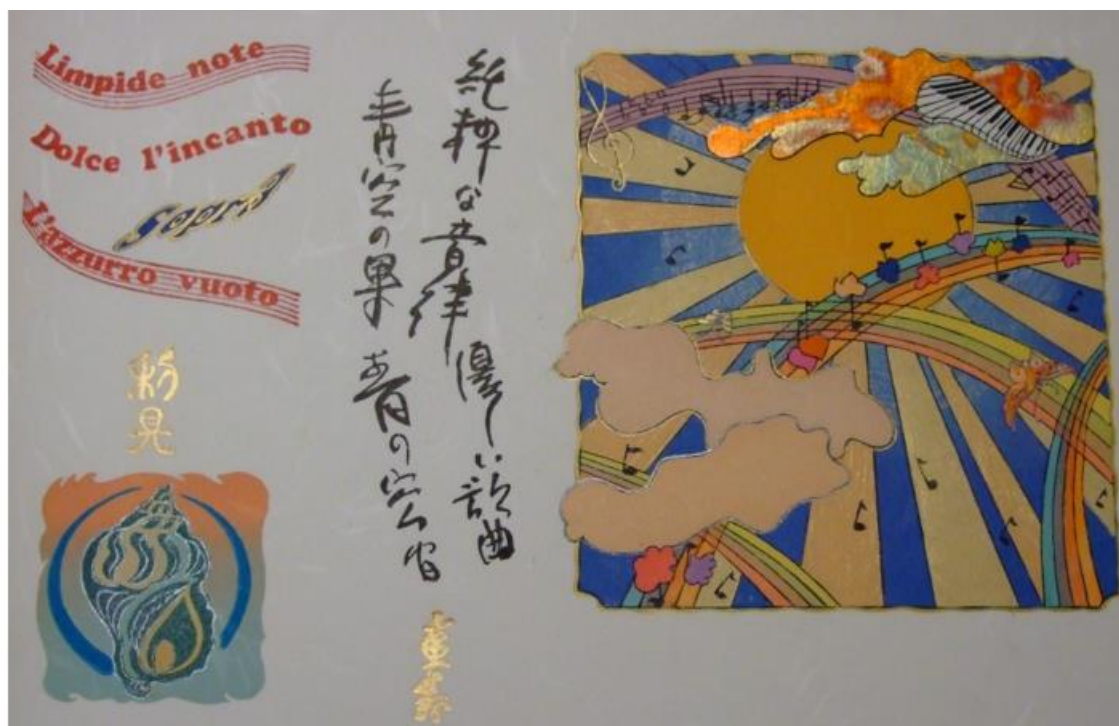 Limpide note
Dolce l'incanto
Sopra
L'azzurro vuoto
純粋な音律 優しい歌曲
青空の果 青の空間